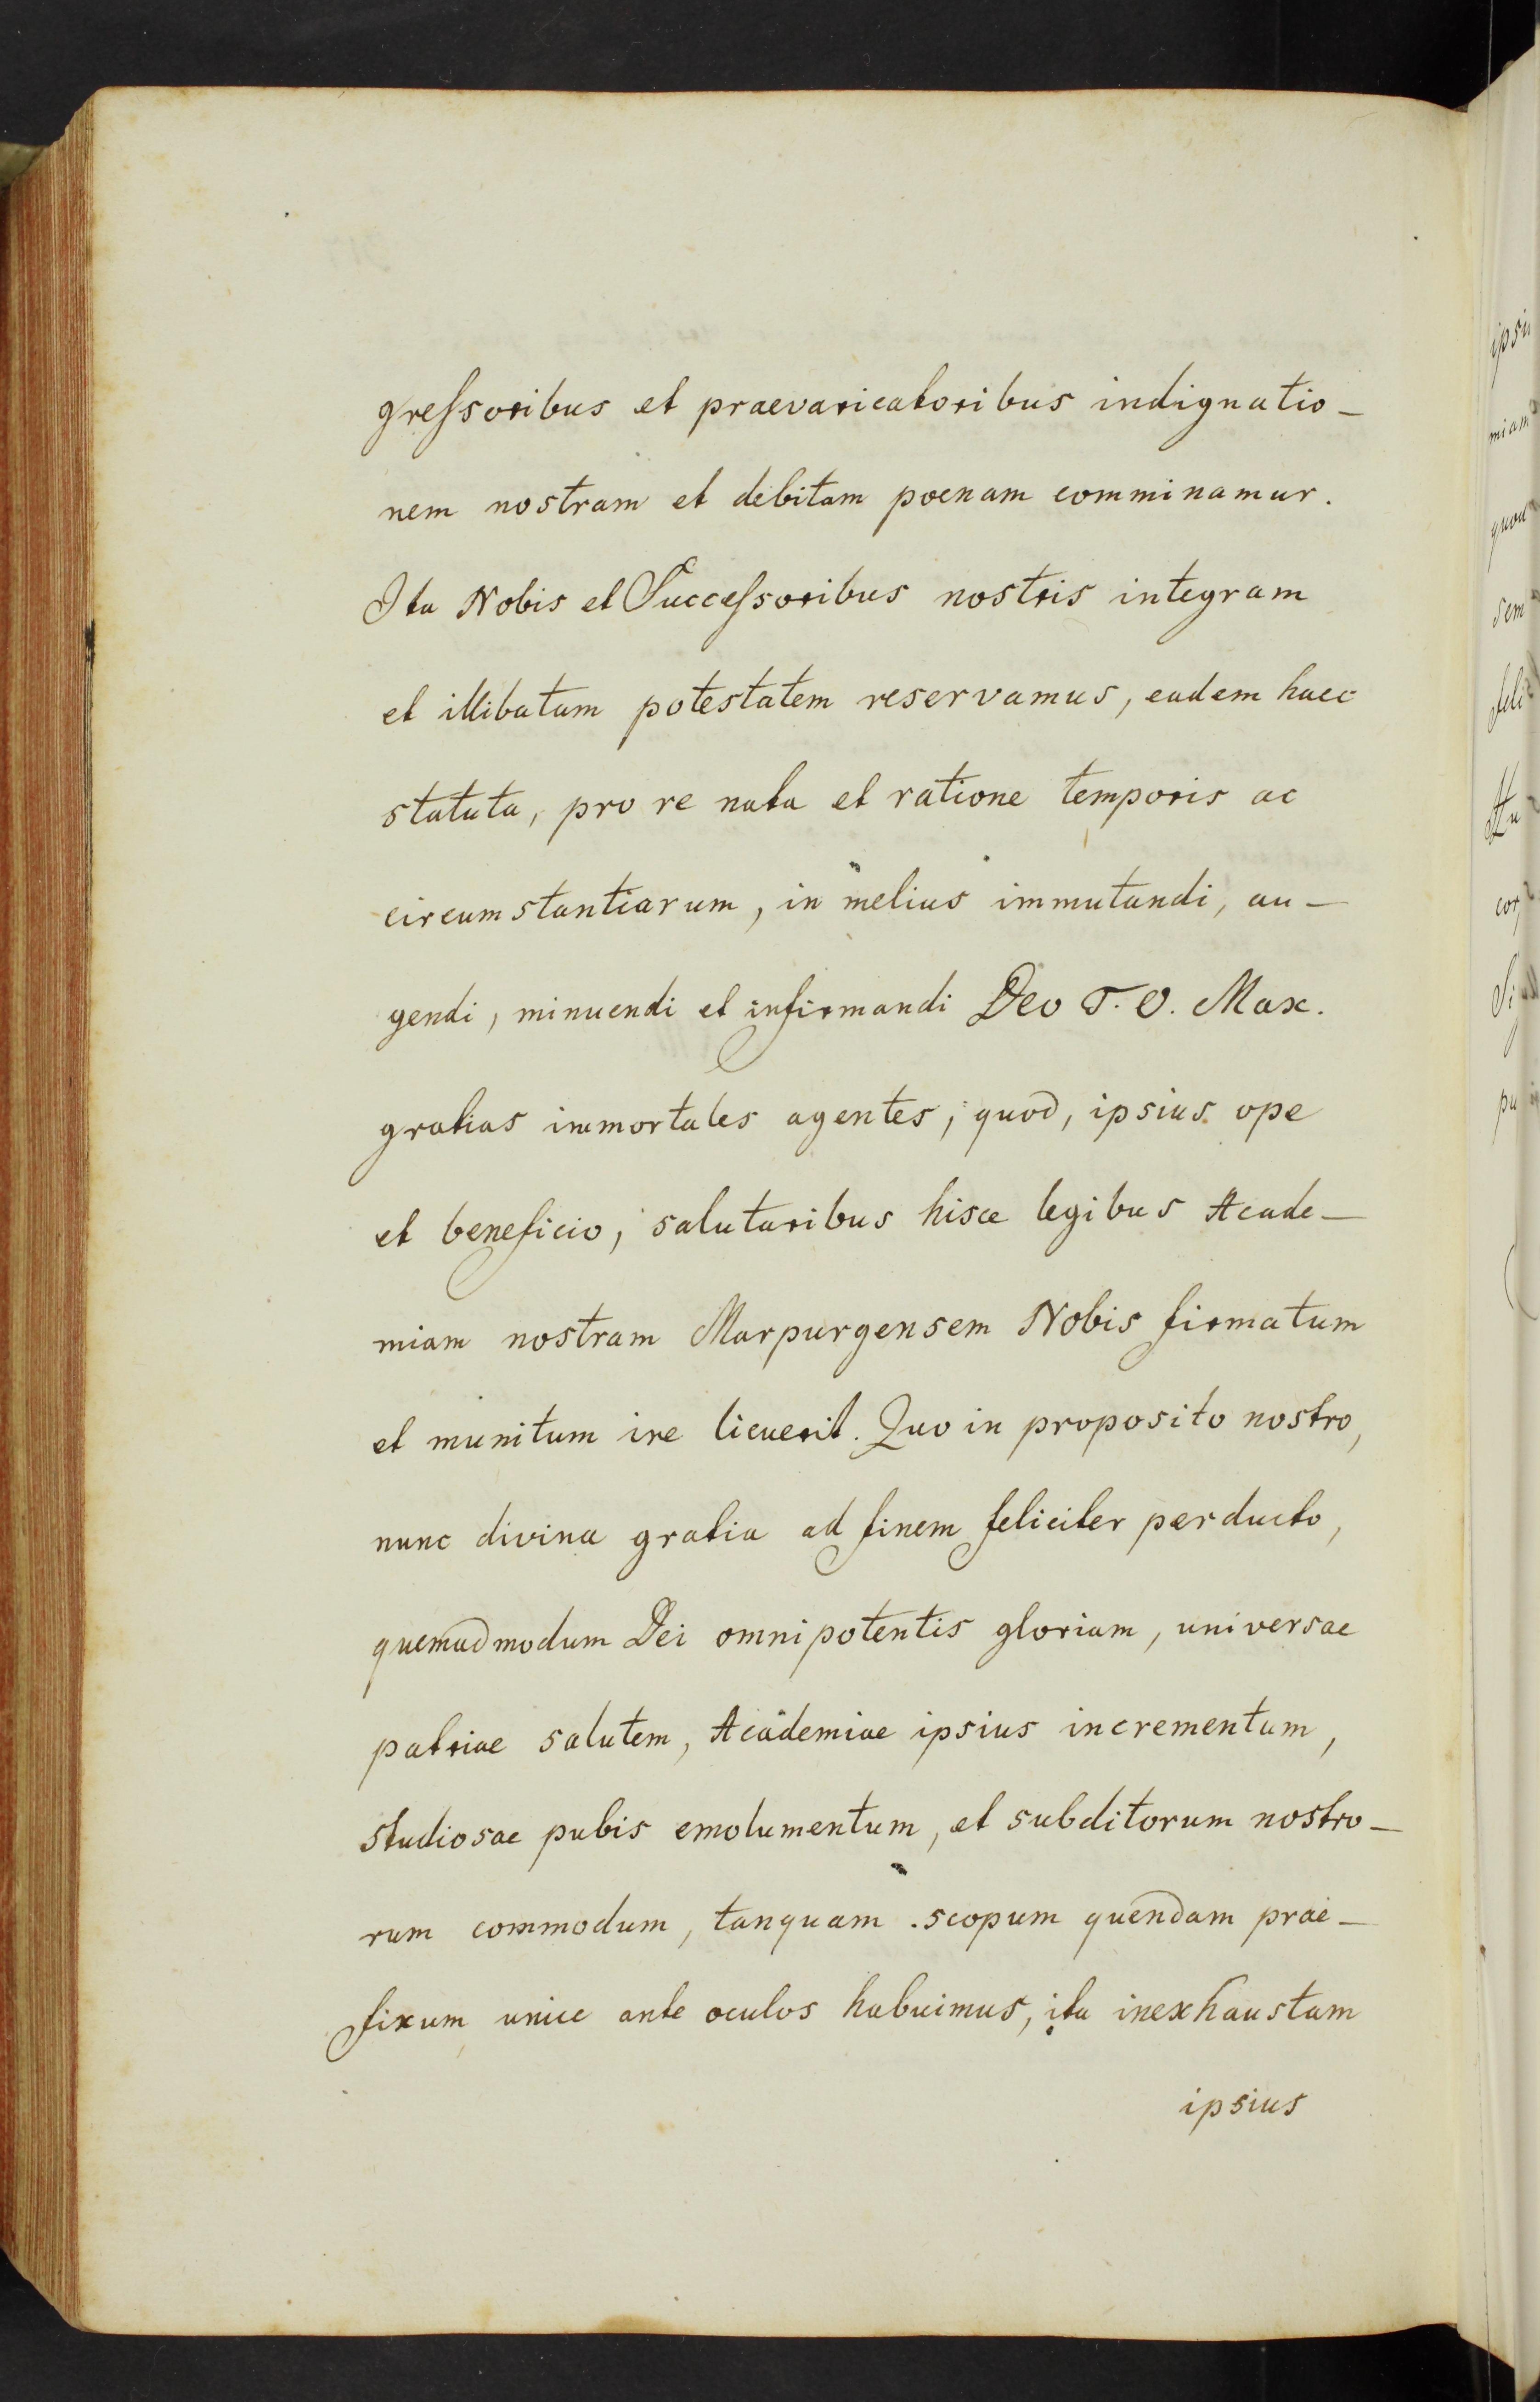 greſsoribus et praevaricatoribus indignatio-
nem nostram et debitam poenam comminamur.
Ita Nobis et Succeſsoribus nostris integram
et illibatam potestatem reservamus, eadem haec
statuta, pro re nata et ratione temporis ac
circumstantiarum, in melius immutandi, au-
gendi, minuendi et infirmandi Deo T. O. Max.
gratias immortales agentes, quod, ipsius ope
et beneficio, salutaribus hisce legibus Acade-
miam nostram Marpurgensem Nobis firmatum
et munitum ire licuerit. Quo in proposito nostro,
nunc divina gratia ad finem feliciter perducto,
quemadmodum Dei omnipotentis gloriam, universae
patriae salutem, Academiae ipsius incrementum,
studiosae pubis emolumentum, et subditorum nostro-
rum commodum, tanquam scopum quendam prae-
fixum unice ante oculos habuimus, ita inexhaustam
ipsius